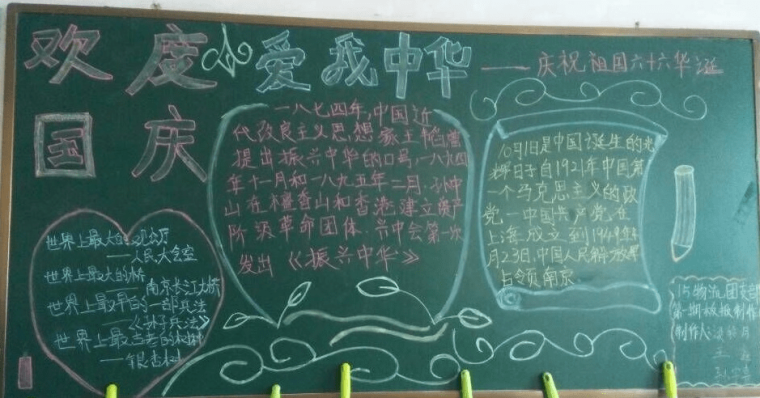 欢度
国庆
爱我中华
——庆祝祖国六十六华诞
一八七四年,中国近
代改良主义思想家王韬曾
提出振兴中华的口号,一八九四
年十一月和一八九五年二月,孙中
山在檀香山和香港建立资产
阶级革命团体,兴中会第一次
发出《振兴中华》
10月1日是中国诞生的光
辉日子自1921年中国第
一个马克思主义的政
党—中国共产党在
上海成立到1949年4
月23日,中国人民解放军
占领南京
世界上最大的
——人民大会堂
世界上最大的桥
南京长江大桥
世界上最早的一部兵法
——《孙子兵法》
世界上最古老的树种
——银杏树
15物流团支部
第一期板报制作
制作人